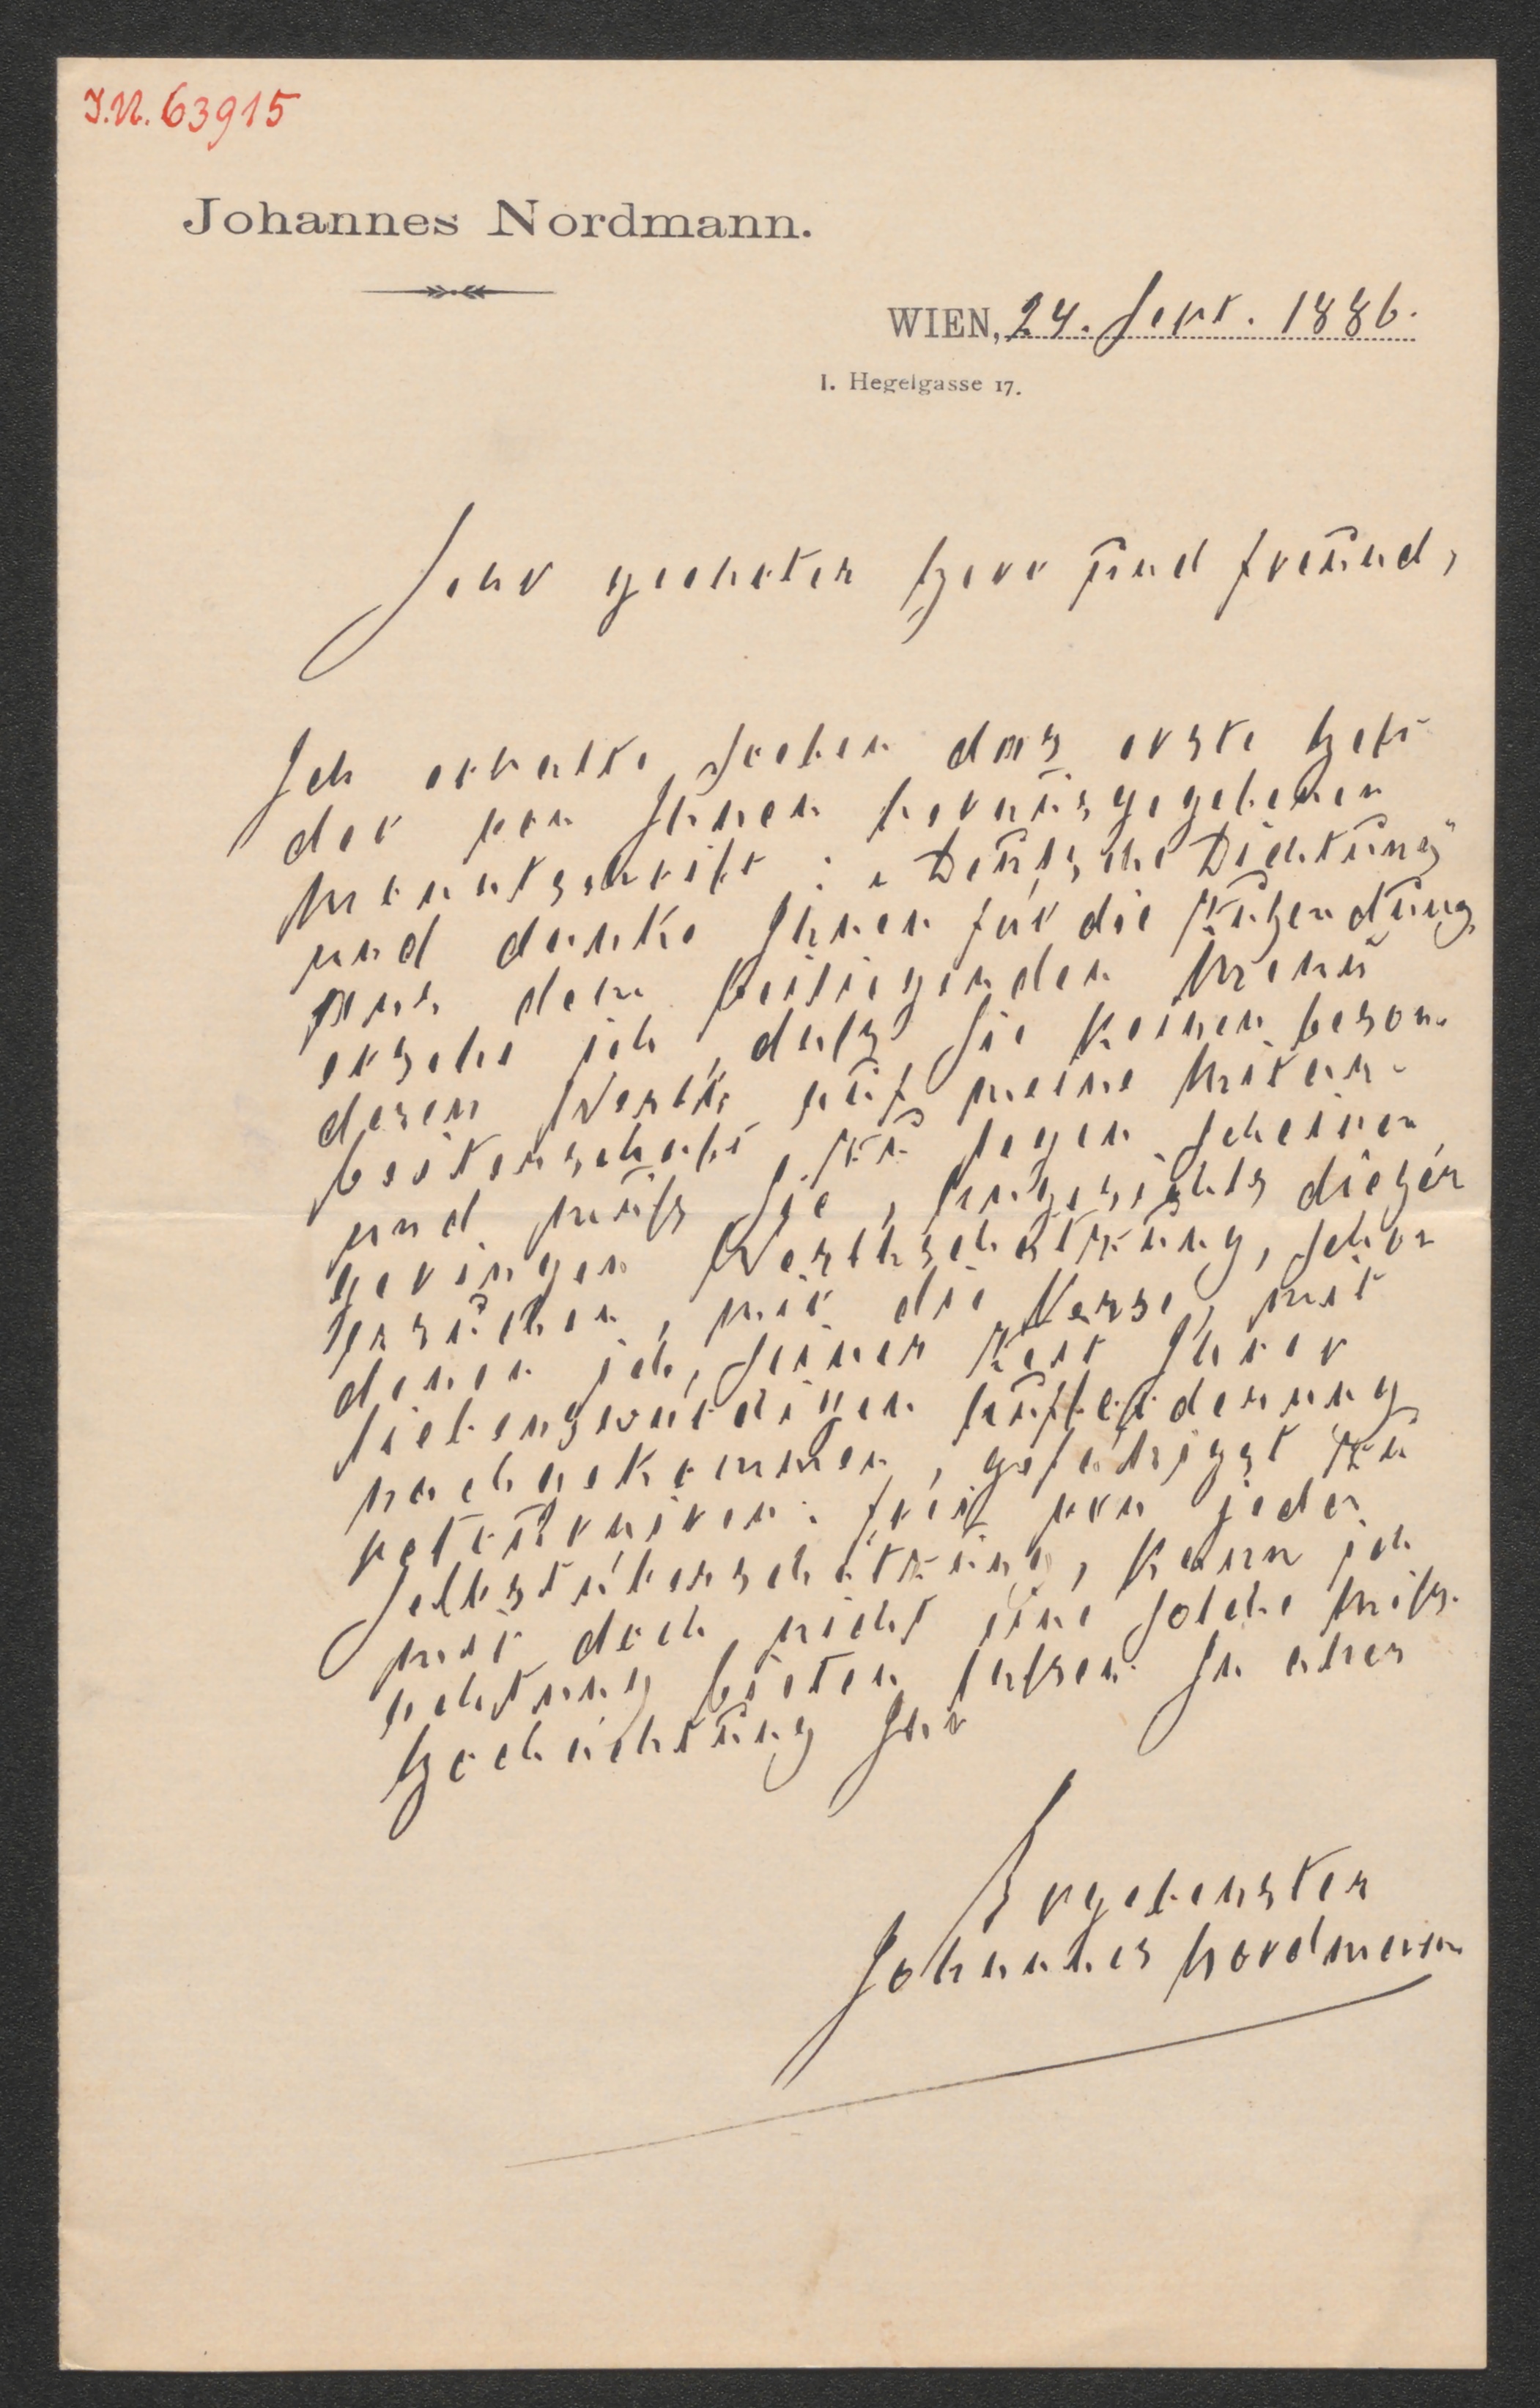 J.N. 63915
Johannes Nordmann.
WIEN, 24. Sept. 1886.
I. Hegelgasse 17.
Sehr geehrter Herr und Freund,
Ich erhalte soeben das erste Heft
der von Ihnen herausgegebenen
Monatsschrift: „Deutsche Dichtung"
und danke Ihnen für die Zusendung.
Aus dem beiliegenden Menu
ersehe ich, daß Sie keinen beson-
deren Werth auf meine Mitar-
beiterschaft zu legen scheinen
und muß Sie, angesichts dieser
geringen Werthschätzung, schon
ersuchen, mir die Verse, mit
denen ich, seiner Zeit Ihrer
liebenswürdigen Aufforderung
nachgekommen, gefälligst zu
retourniren. Frei von jeder
Selbstüberschätzung, kann ich
mir doch nicht eine solche Miß-
achtung bieten lassen. In aller
Hochachtung Ihr
Ergebenster
Johannes Nordmann